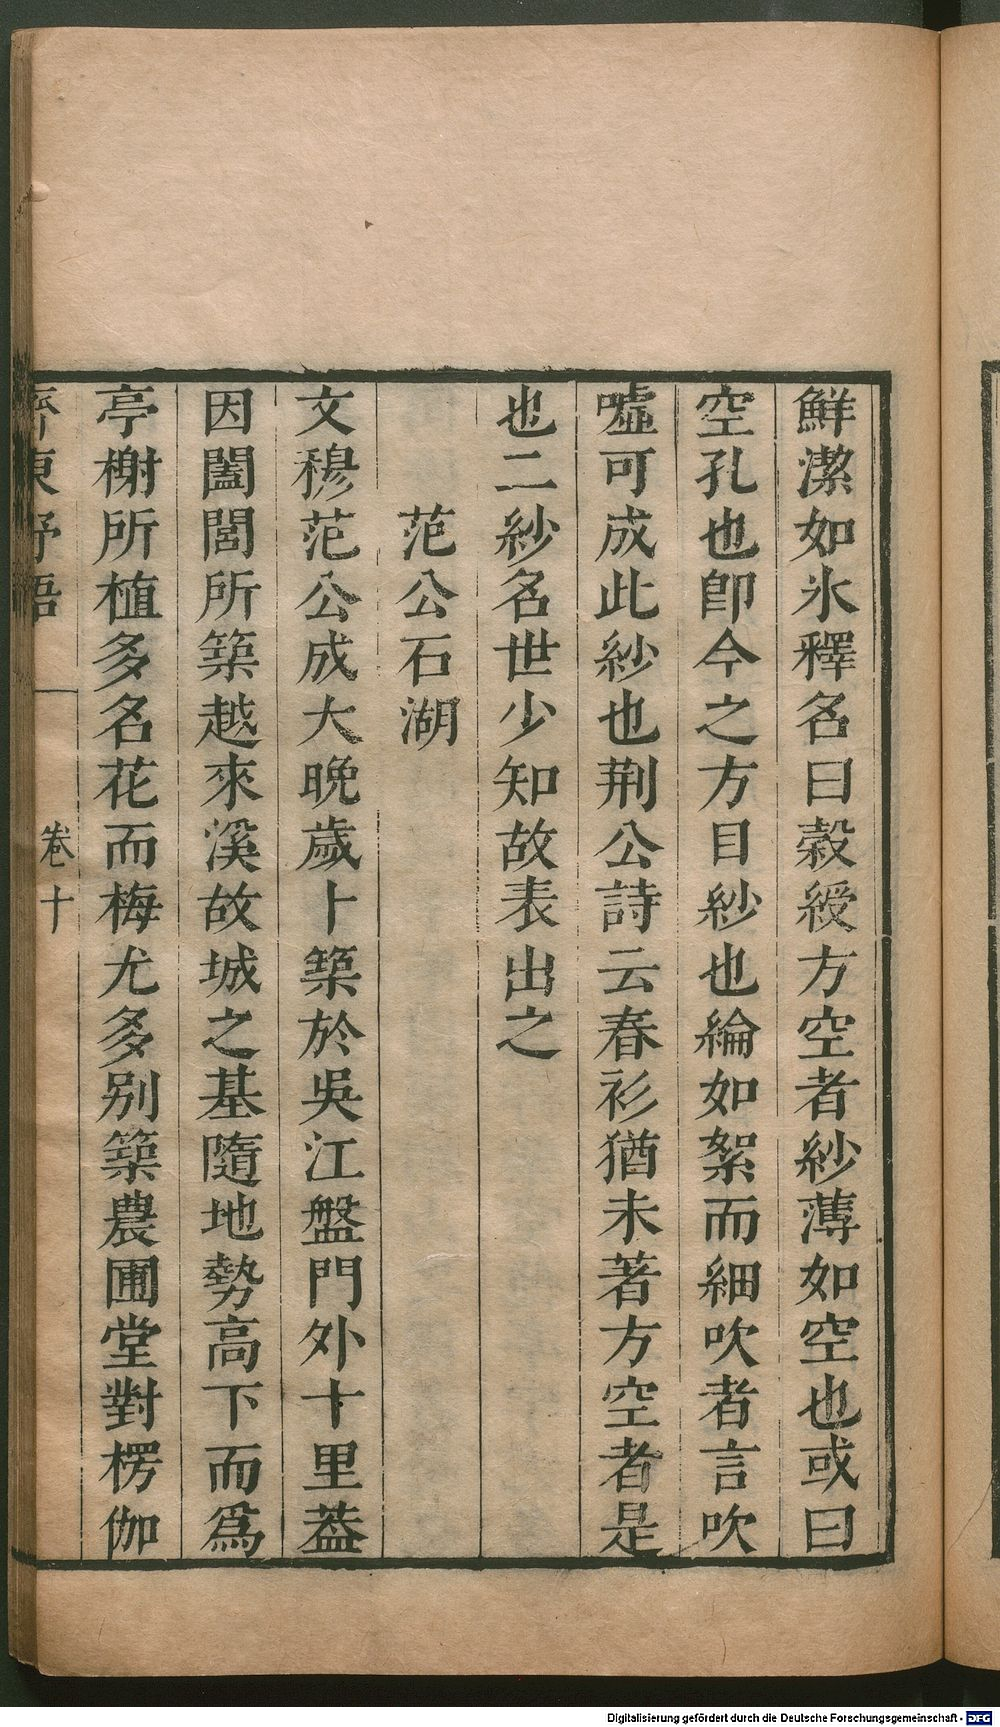 鮮潔如氷釋名曰縠綬方空者紗薄如空也或曰
空孔也卽今之方目紗也綸如絮而細吹者言吹
嘘可成此紗也荆公詩云春衫猶未著方空者是
也二紗名世少知故表出之
范公石湖
文穆范公成大晚歲卜築於吳江盤門外十里葢
因闔閭所築越來溪故城之基隨地勢高下而爲
亭榭所植多名花而梅尤多别築農圃堂對楞伽
齊東野語
卷十
Digitalisierung gefördert durch die Deutsche Forschungsgemeinschaft - DFG